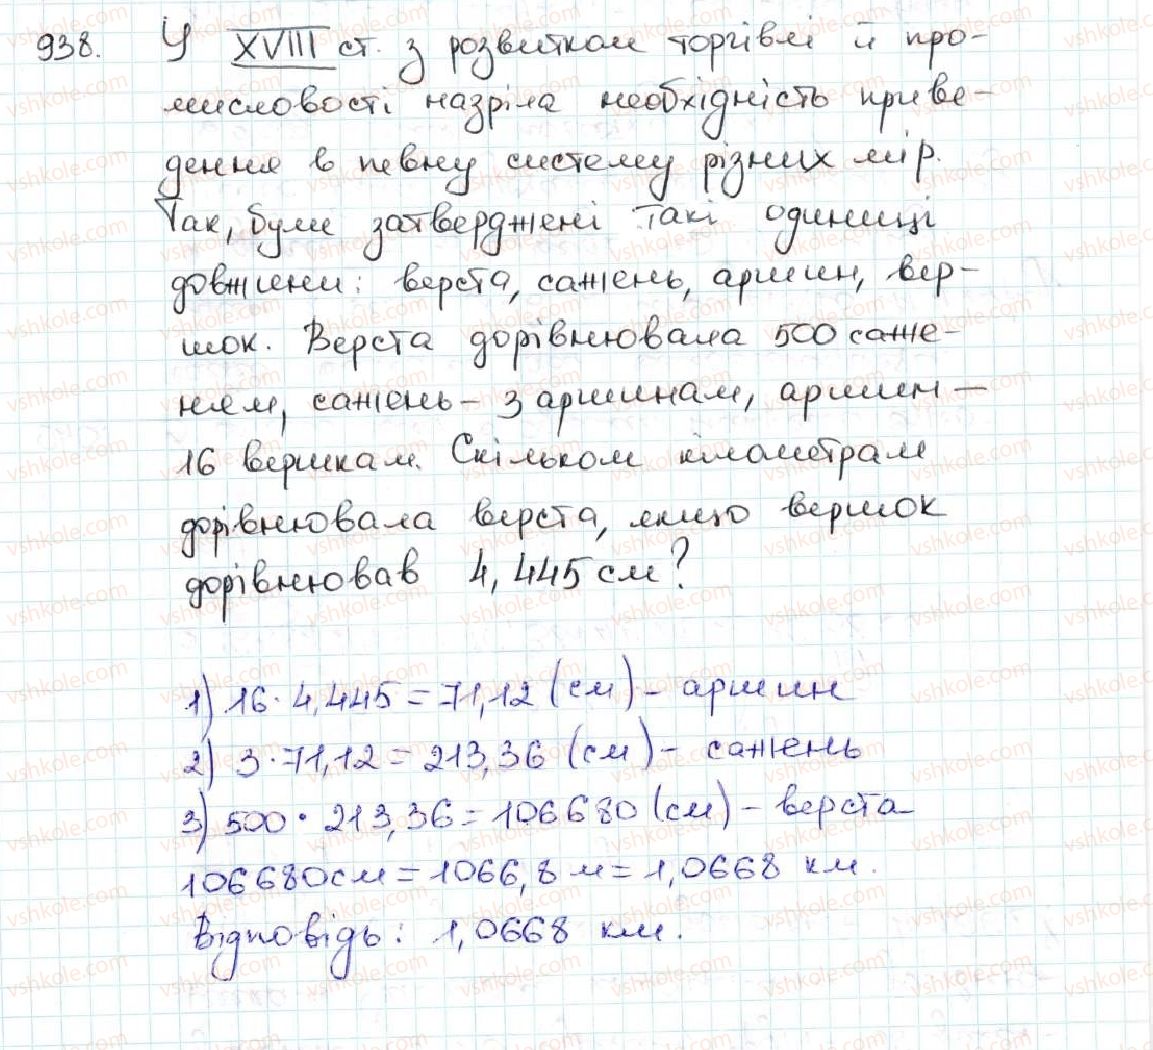 938. У XVIII ст. з розвитком торгівлі й про-
мисловості назріла необхідність приве-
дення в певну систему різних мір.
Так, були затверджені такі одиниці
довжини: верста, сажень, аршин, вер-
шок. Верста дорівнювала 500 саже-
ням, сажень – 3 аршинам, аршин –
16 вершкам. Скільком кілометрам
дорівнювала верста, якщо вершок
дорівнював 4,445 см?
1) 16 · 4,445 = 71,12 (см) – аршин
2) 3 · 71,12 = 213,36 (см) – сажень
3) 500 · 213,36 = 106680 (см) – верста
106680 см = 1066,8 м = 1,0668 км.
Відповідь: 1,0668 км.
vshkole.com